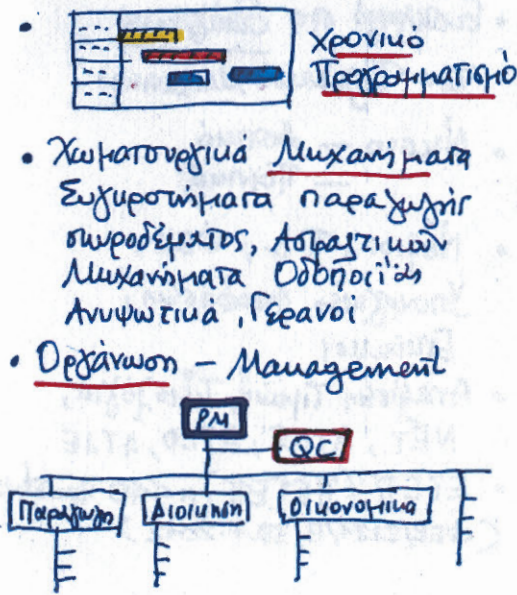 • Χρονικό
Προγραμματισμό
• Χωματουργικά Μηχανήματα
Συγκροτήματα παραγωγής
σκυροδέματος, Ασφαλτικών
Μηχανήματα Οδοποιΐας
Ανυψωτικά, Γερανοί
• Οργάνωση – Management
PM
QC
Παραγωγή Διοίκηση Οικονομικά